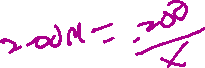 2.00M = .200/x